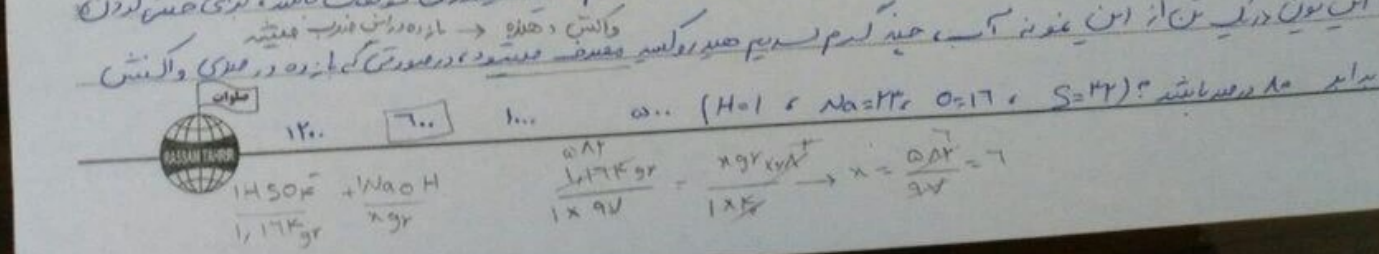 واکنش دهنده → بازده در این ضرب میشه
این یون در یک تن از این نمونه آب، چند گرم سدیم هیدروکسید مصرف میشود، در صورتی که بازده درصدی واکنش
برابر ۸۰ درصد باشد؟ (H=1 ، Na=۲۳، O=۱۶ ، S=۳۲)
۵۰۰ ۱۰۰۰ ۶۰۰ ۱۲۰۰
صلوات
RASSAM TAHRIR
1HSO۴⁻ + 1NaOH
۱,۱۶۴gr xgr
۵۸۲
۱,۱۶۴gr / ۱×۹۷ = xgr / ۱×۴۰ → x = ۵۸۲ / ۹۷ = ۶